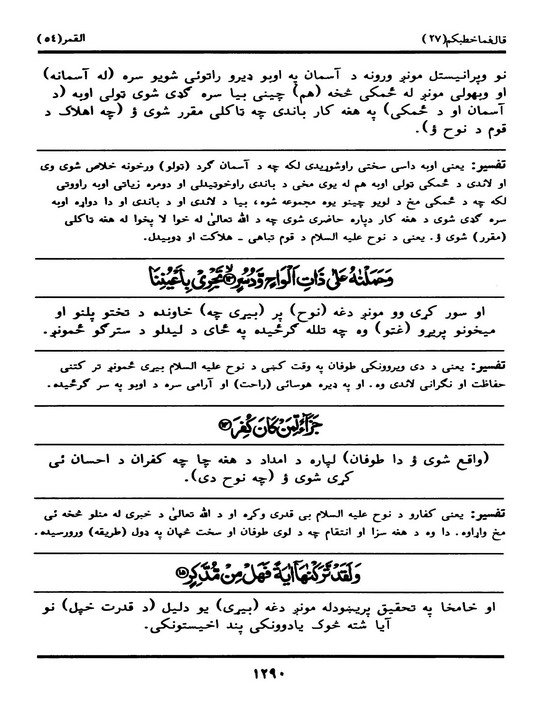 قال فما خطبكم(٢٧) القمر(٥٤)
نو وپرانیستل مونږ ورونه د آسمان په اوبو ډیرو راتوئی شویو سره (له آسمانه)
او وبهولی مونږ له ځمکی څخه (هم) چینی بیا سره گډی شوی تولی اوبه (د
آسمان او د ځمکی) په هغه کار باندی چه تاکلی مقرر شوی ؤ (چه اهلاک د
قوم د نوح ؤ).
تفسیر: یعنی اوبه داسی سختی راوشوړیدی لکه چه د آسمان گرد (تولو) ورخونه خلاص شوی وی
او لاندی د ځمکی تولی اوبه هم له یوی مخی د باندی راوخوتیدلی او دومره زیاتی اوبه راووتی
لکه چه د ځمکی مخ د لویو چینو یوه مجموعه شوه، بیا د لاندی او د باندی او دا دواړه اوبه
سره گډی شوی د هغه کار دپاره حاضری شوی چه د الله تعالیٰ له خوا لا پخوا له هغه تاکلی
(مقرر) شوی ؤ. یعنی د نوح علیه السلام د قوم تباهی ـ هلاکت او ډوبیدل.
وَحَمَلْنٰهُ عَلٰی ذَاتِ اَلْوَاحٍ وَّدُسُرٍ ﴿١٣﴾ تَجْرِیْ بِاَعْیُنِنَا
او سور کړی وو مونږ دغه (نوح) پر (بیړی چه) خاونده د تختو پلنو او
میخونو پریړو (غتو) وه چه تلله گرځیده په ځای د لیدلو د سترگو ځمونږ.
تفسیر: یعنی د دی ویروونکی طوفان په وقت کښی د نوح علیه السلام بیړی ځمونږ تر کتنی
حفاظت او نگرانی لاندی وه. او په ډیره هوسائی (راحت) او آرامی سره د اوبو په سر گرځیده.
جَزَآءً لِّمَنْ كَانَ كُفِرَ ﴿١٤﴾
(واقع شوی ؤ دا طوفان) لپاره د امداد د هغه چا چه کفران د احسان ئی
کړی شوی ؤ (چه نوح دی).
تفسیر: یعنی کفارو د نوح علیه السلام بی قدری وکړه او د الله تعالیٰ د خبری له منلو څخه ئی
مخ واړاوه. دا وه د هغه سزا او انتقام چه د لوی طوفان او سخت څپان په ډول (طریقه) ورورسیده.
وَلَقَدْ تَّرَكْنٰهَاۤ اٰیَةً فَهَلْ مِنْ مُّدَّكِرٍ ﴿١٥﴾
او خامخا په تحقیق پریښودله مونږ دغه (بیړی) یو دلیل (د قدرت خپل) نو
آیا شته څوک یادوونکی پند اخیستونکی.
١٢٩٠